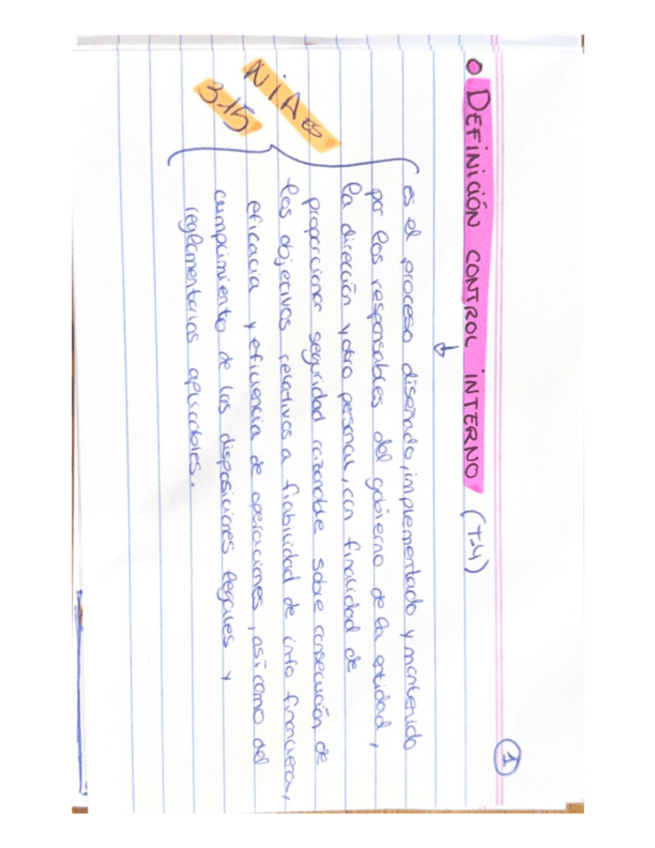 1
• DEFINICIÓN CONTROL INTERNO (T.4)
↓
NIA ES
315
es el proceso diseñado, implementado y mantenido
por los responsables del gobierno de la entidad,
la dirección y otro personal, con finalidad de
proporcionar seguridad razonable sobre consecución de
los objetivos relativos a fiabilidad de info financiera,
eficacia y eficiencia de operaciones, así como del
cumplimiento de las disposiciones legales y
reglamentarias aplicables.